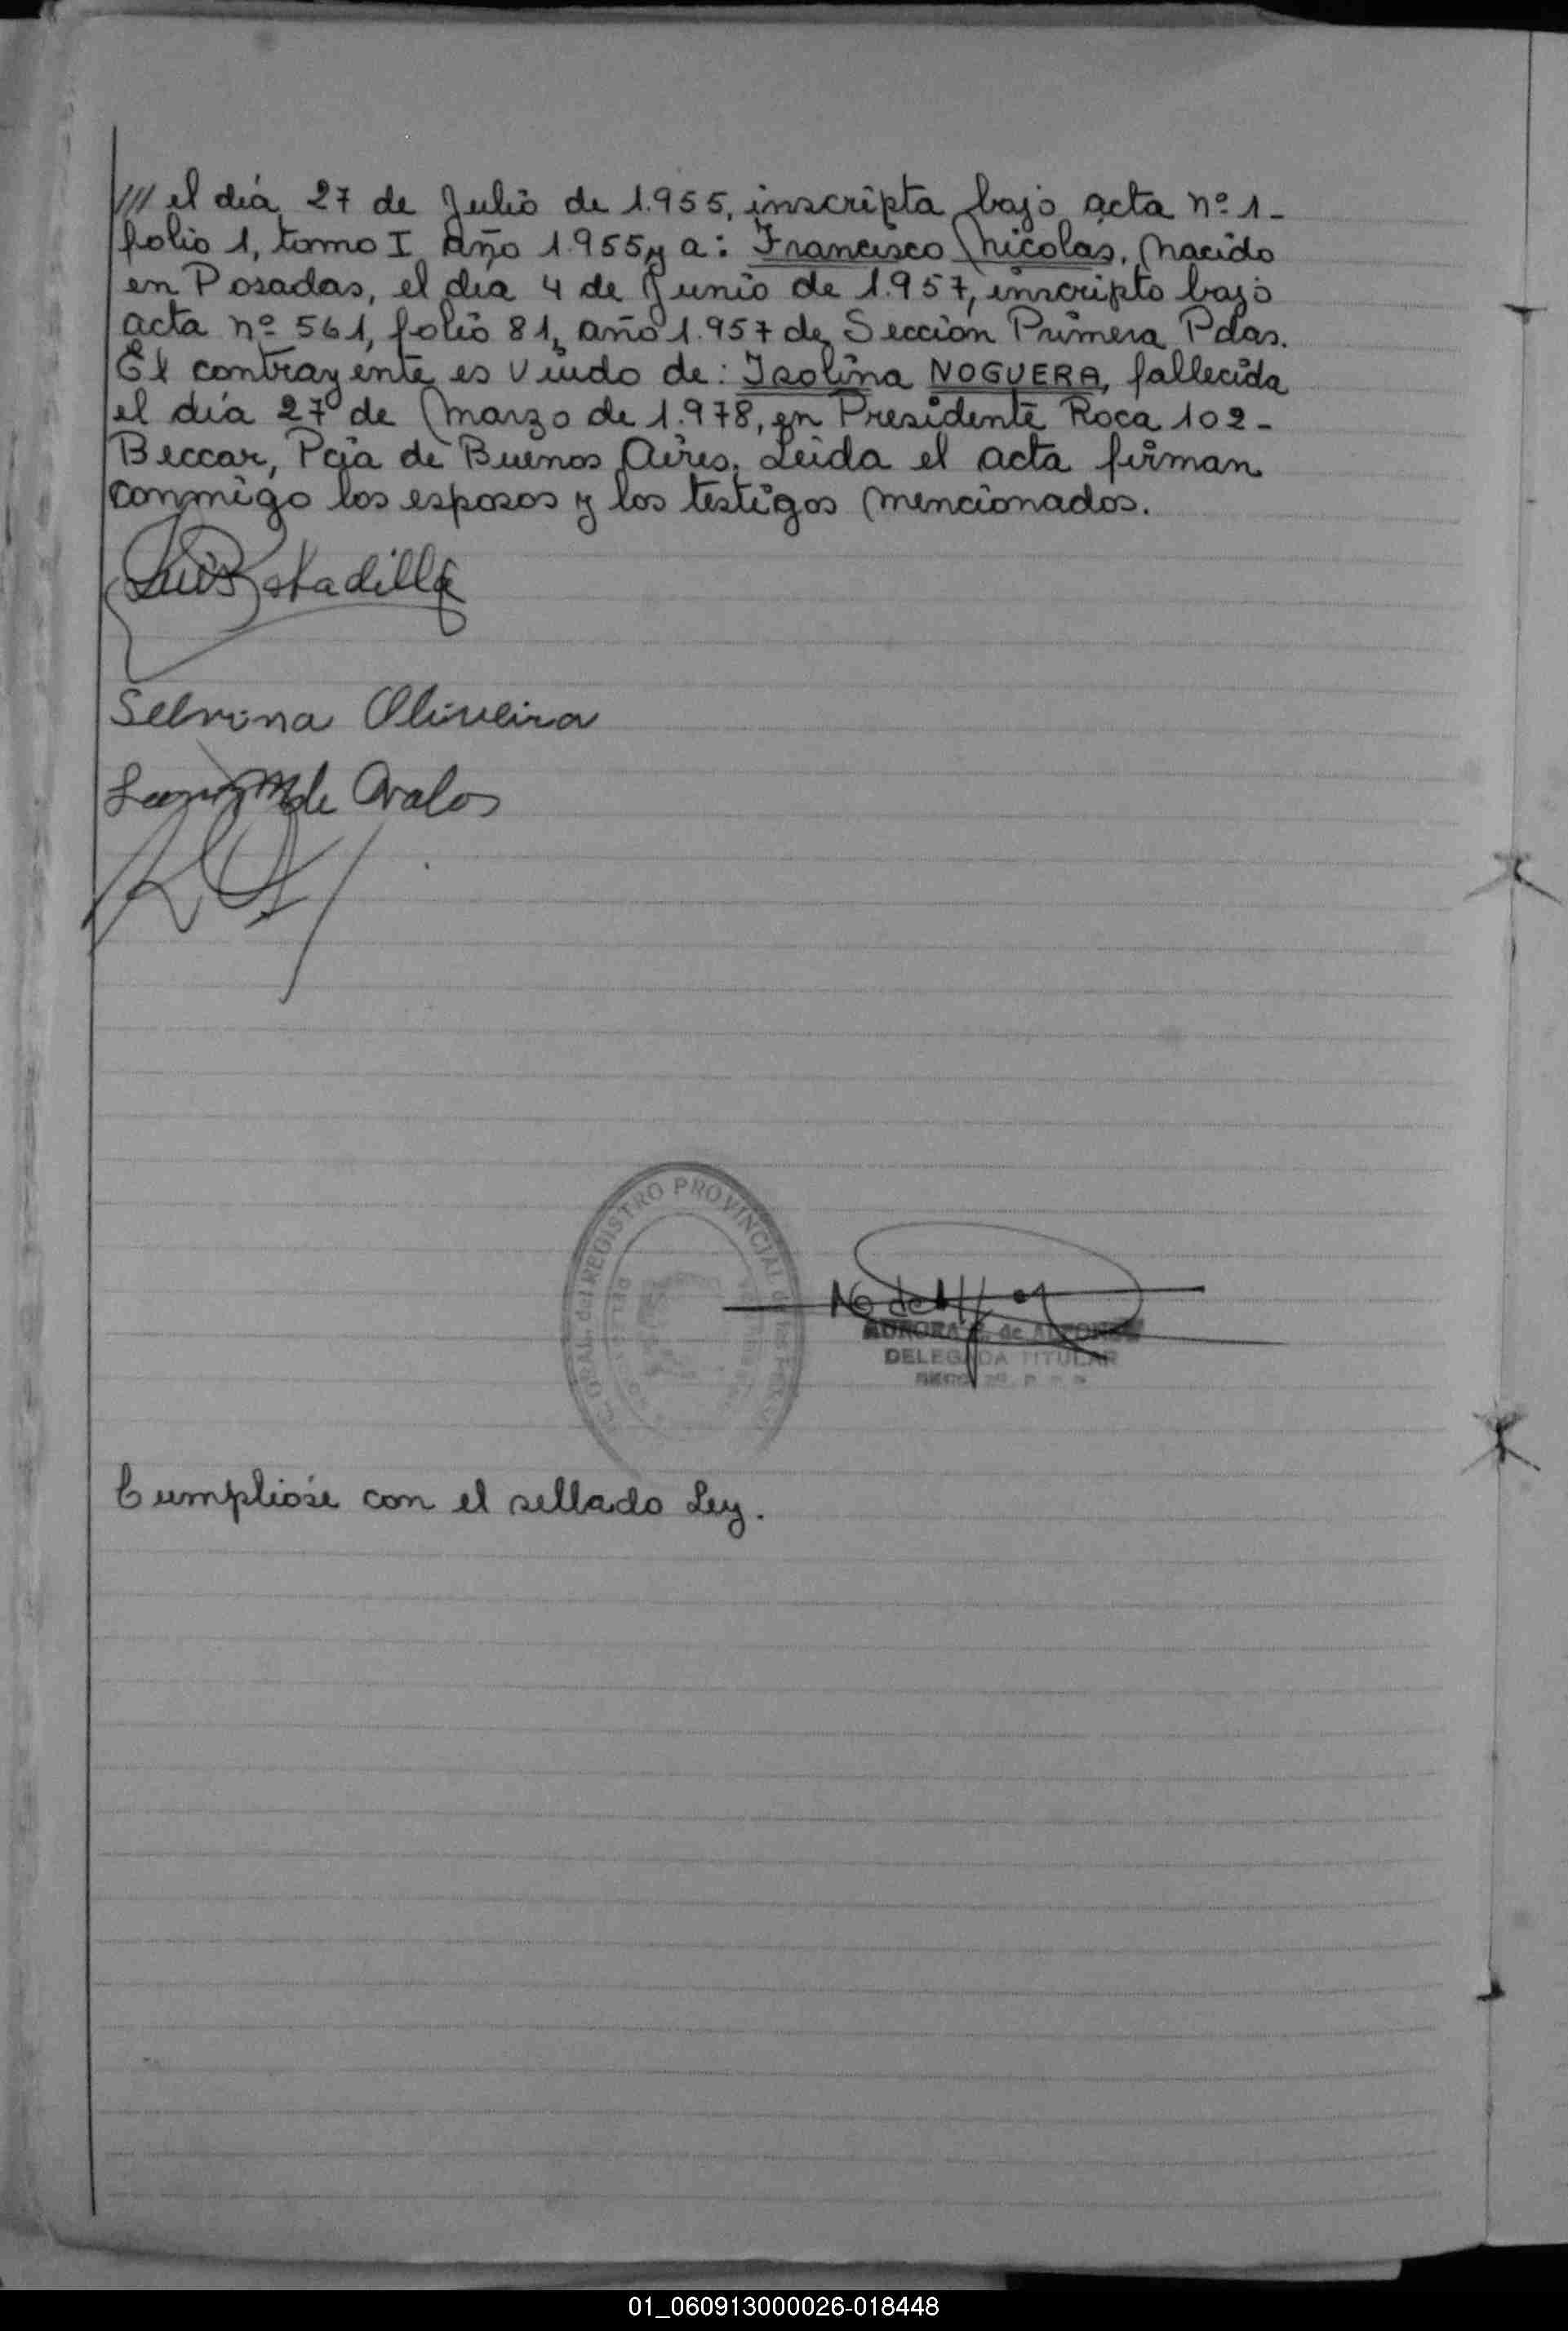 /// el día 27 de Julio de 1.955, inscripta bajo acta nº 1-
folio 1, tomo I año 1.955, y a: Francisco Nicolás, nacido
en Posadas, el dia 4 de Junio de 1.957, inscripto bajo
acta nº 561, folio 81, año 1.957 de Sección Primera Pdas.
El contrayente es Viudo de: Isolina NOGUERA, fallecida
el día 27 de Marzo de 1.978, en Presidente Roca 102-
Beccar, Pcia de Buenos Aires. Leida el acta firman
conmigo los esposos y los testigos mencionados.
Luis
Selvina Oliveira
de Avalos
REGISTRO PROVINCIAL de las
AURORA de
DELEGADA TITULAR
Cumplióse con el sellado Ley.
01_060913000026-018448